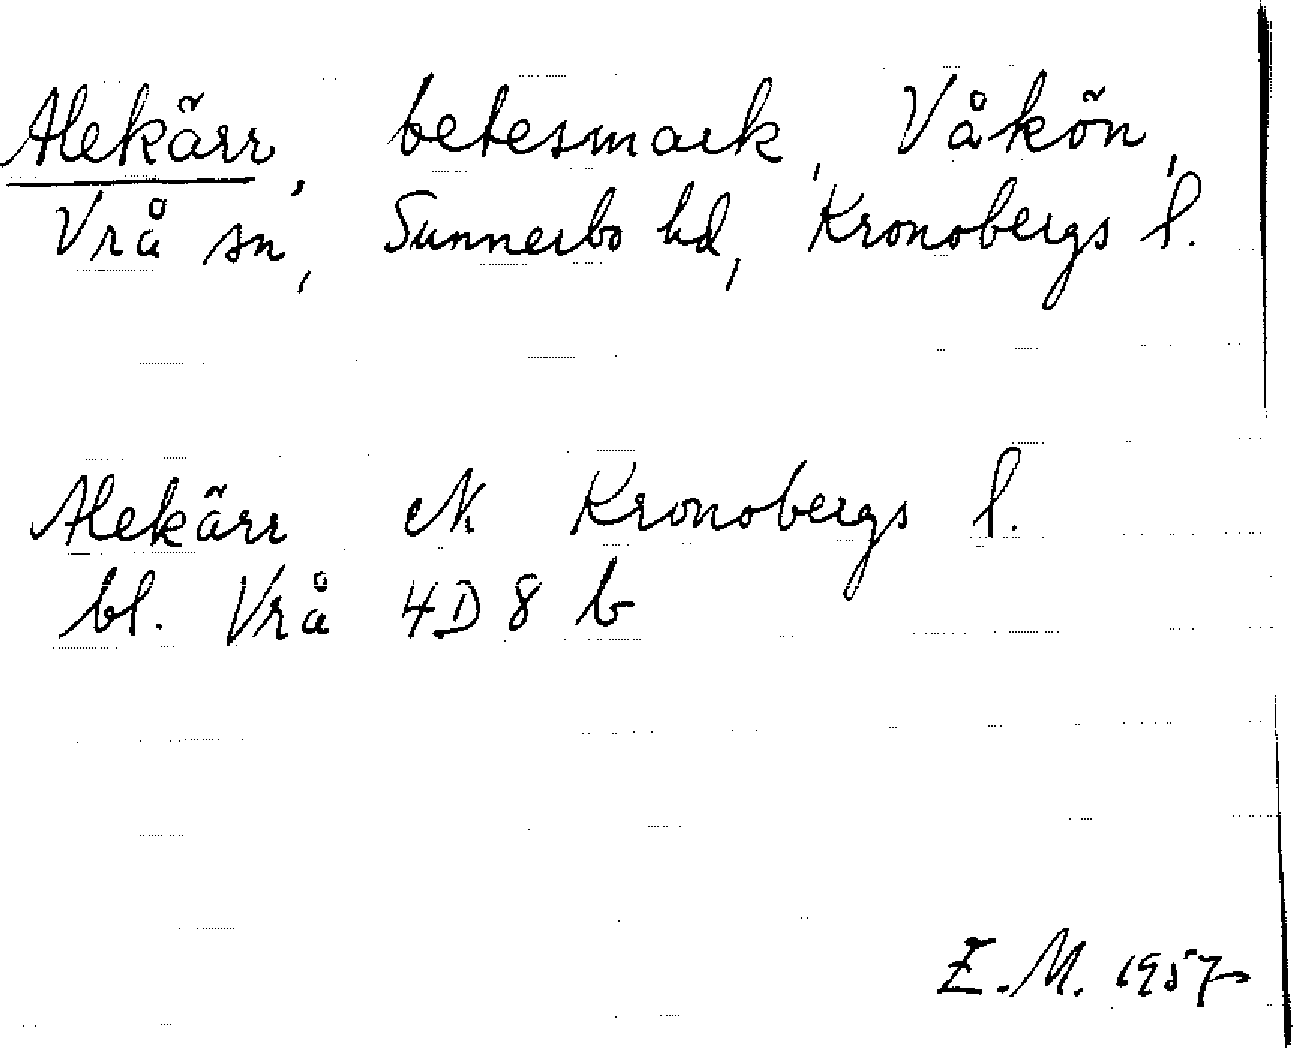 Alekärr, betesmark, Våkön,
Vrå sn, Sunnerbo hd, Kronobergs l.
Alekärr eK Kronobergs l.
bl. Vrå 4D 8 b
E.M. 1957